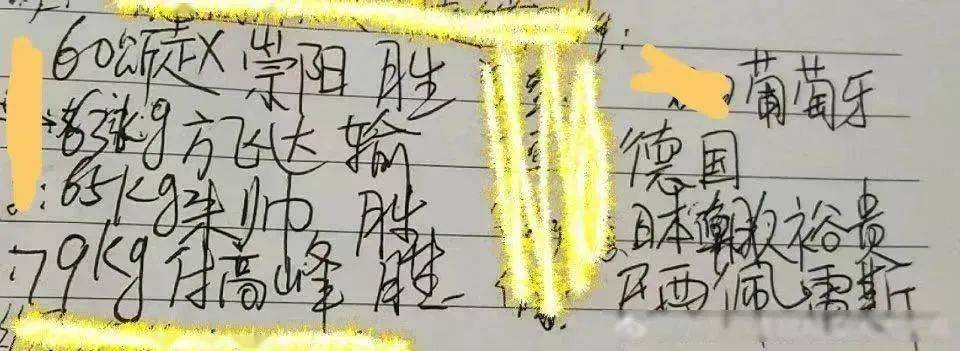 60颂疌X 崇阳 胜
63kg方飞达 输
65kg朱帅 胜
79kg付高峰 胜
葡萄牙
德国
日本 裕贵
西佩雷斯